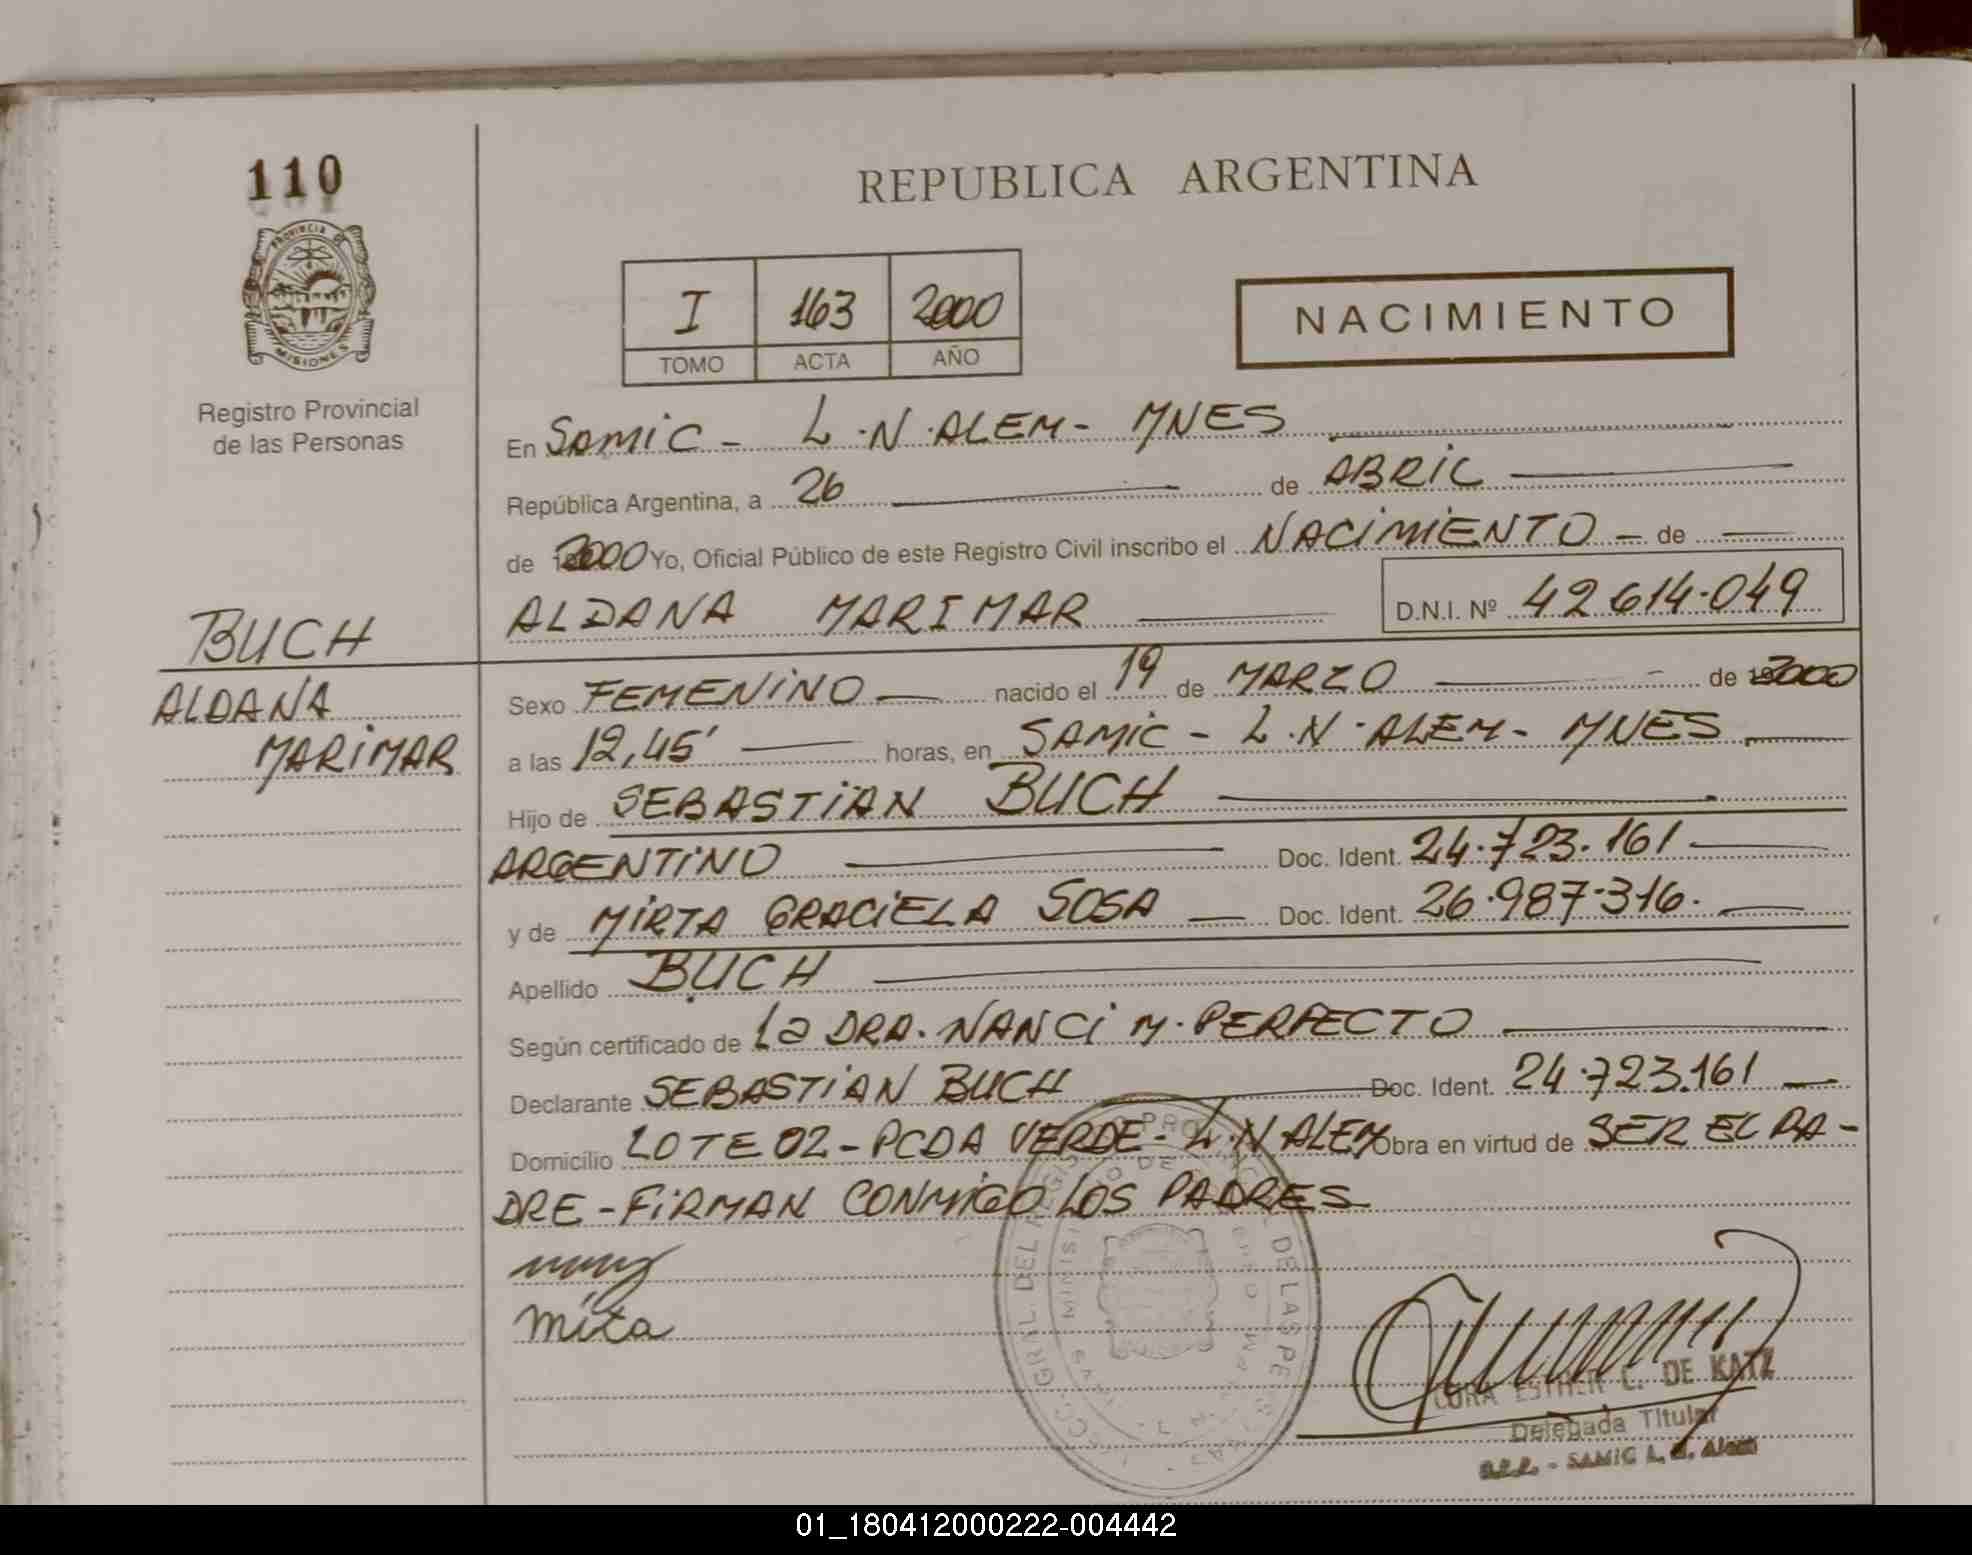 110
PROVINCIA DE
MISIONES
Registro Provincial
de las Personas
REPUBLICA ARGENTINA
I 163 2000
TOMO ACTA AÑO
NACIMIENTO
En SAMIC - L.N.ALEM - MNES
República Argentina, a 26 de ABRIL
de 2000 Yo, Oficial Público de este Registro Civil inscribo el NACIMIENTO - de
ALDANA MARIMAR D.N.I. Nº 42614.049
BUCH
ALDANA
MARIMAR
Sexo FEMENINO nacido el 19 de MARZO de 2000
a las 12,45' horas, en SAMIC - L.N.ALEM - MNES
Hijo de SEBASTIAN BUCH
ARGENTINO Doc. Ident. 24.723.161
y de MIRTA GRACIELA SOSA Doc. Ident. 26.987.316.
Apellido BUCH
Según certificado de La DRA. NANCI M. PERFECTO
Declarante SEBASTIAN BUCH Doc. Ident. 24.723.161
Domicilio LOTE 02 - PCDA VERDE - L.N ALEM Obra en virtud de SER EL PA-
DRE - FIRMAN CONMIGO LOS PADRES
DE KATZ
Delegada Titular
SAMIC L. N. Alem
01_180412000222-004442